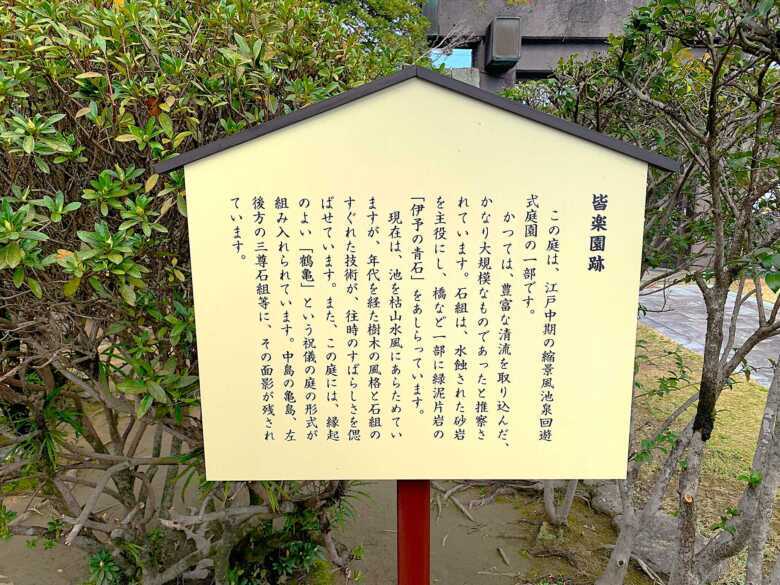 皆楽園跡
この庭は、江戸中期の縮景風池泉回遊
式庭園の一部です。
かつては、豊富な清流を取り込んだ、
かなり大規模なものであったと推察さ
れています。石組は、水蝕された砂岩
を主役にし、橋など一部に緑泥片岩の
「伊予の青石」をあしらっています。
現在は、池を枯山水風にあらためてい
ますが、年代を経た樹木の風格と石組の
すぐれた技術が、往時のすばらしさを偲
ばせています。また、この庭には、縁起
のよい「鶴亀」という祝儀の庭の形式が
組み入れられています。中島の亀島、左
後方の三尊石組等に、その面影が残され
ています。